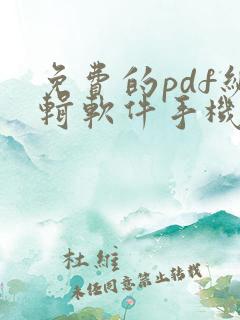 免費的pdf編
輯軟件手機
杜維
未任同意禁止转载